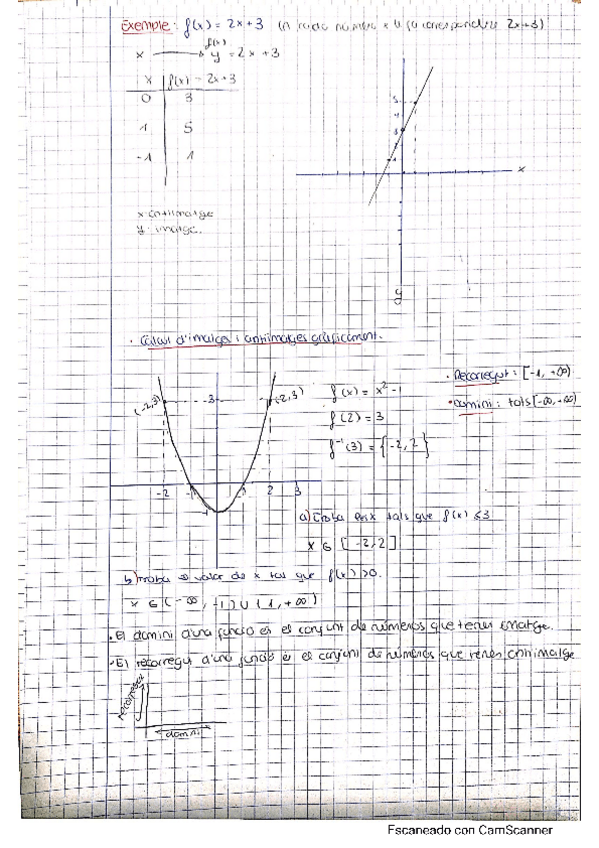 Exemple: f(x) = 2x+3 (A cada número x li fa correspondre 2x+3)
x f(x) y = 2x+3
x f(x) = 2x+3
0 3
1 5
-1 1
x antiimatge
y: imatge.
x
y
· Càlcul d'imatge i antiimatges gràficament.
(-2,3) -3- (2,3)
-2 -1 1 2 3
-1
f(x) = x²-1
f(2) = 3
f⁻¹(3) = {-2,2}
· Recorregut: [-1, +∞)
· Domini: tots [-∞, +∞)
a) Troba x tals que f(x) ≤3
x ∈ [-2,2]
b) Troba valor de x tal que f(x) >0.
x ∈ (-∞, -1) U (1, +∞)
· El domini d'una funció és el conjunt de números que tenen imatge.
· El recorregut d'una funció és el conjunt de números que tenen antiimatge
recorregut
domini
Escaneado con CamScanner